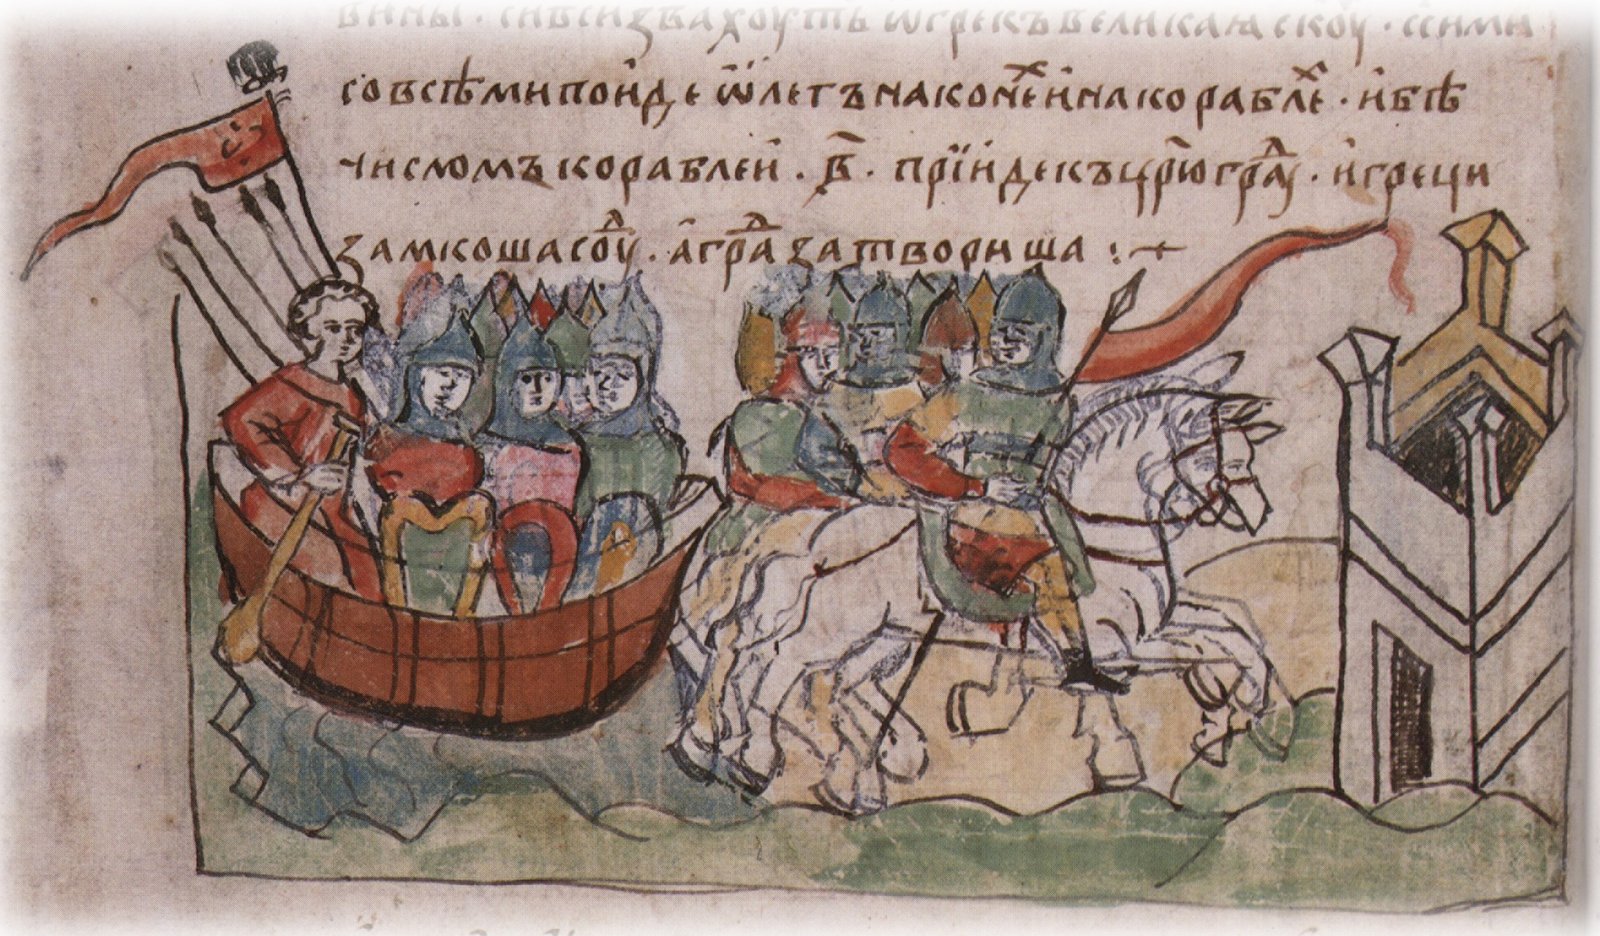 вины · сивсизвахоуть ѿгрекъ великаꙗ скоу · ссими
совсѣмипоиде ѡлегъ наконеⷯ инакораблеⷯ · ибѣ
числомъ кораблеи · в҃ · прїидекъ цр҃ югра · игреци
замкошасоуⷣ · аграⷣ затвориша :